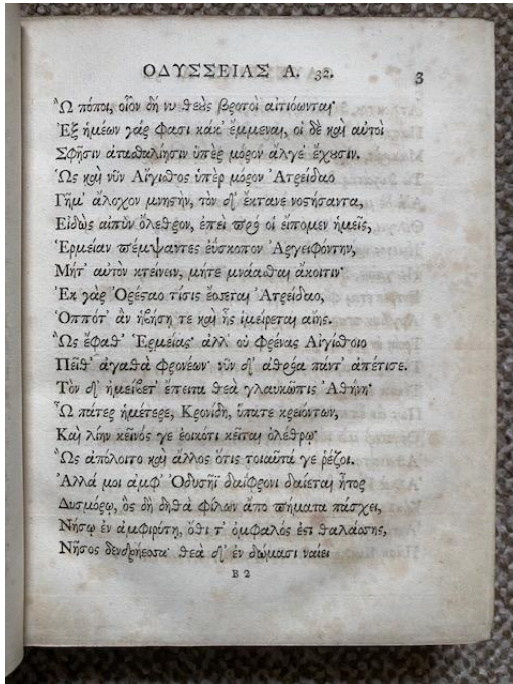 ΟΔΥΣΣΕΙΑΣ Α. 32. 3
Ὢ πόποι, οἷον δή νυ θεὰς βροτοὶ αἰτιόωνται·
Ἐξ ἡμέων γάρ φασι κάκ' ἔμμεναι, οἱ δὲ καὶ αὐτοὶ
Σφῇσιν ἀτασθαλίῃσιν ὑπὲρ μόρον ἄλγε' ἔχουσιν.
Ὡς καὶ νῦν Αἴγισθος ὑπὲρ μόρον Ἀτρείδαο
Γῆμ' ἄλοχον μνηστὴν, τὸν δ' ἔκτανε νοστήσαντα,
Εἰδὼς αἰπὺν ὄλεθρον, ἐπεὶ πρό οἱ εἴπομεν ἡμεῖς,
Ἑρμείαν πέμψαντες ἐΰσκοπον Ἀργειφόντην,
Μήτ' αὐτὸν κτείνειν, μήτε μνάασθαι ἄκοιτιν·
Ἐκ γὰρ Ὀρέσταο τίσις ἔσσεται Ἀτρείδαο,
Ὁππότ' ἂν ἡβήσῃ τε καὶ ἧς ἱμείρεται αἴης.
Ὣς ἔφαθ' Ἑρμείας· ἀλλ' οὐ φρένας Αἰγίσθοιο
Πεῖθ' ἀγαθὰ φρονέων· νῦν δ' ἀθρόα πάντ' ἀπέτισε.
Τὸν δ' ἠμείβετ' ἔπειτα θεὰ γλαυκῶπις Ἀθήνη·
Ὦ πάτερ ἡμέτερε, Κρονίδη, ὕπατε κρειόντων,
Καὶ λίην κεῖνός γε ἐοικότι κεῖται ὀλέθρῳ·
Ὡς ἀπόλοιτο καὶ ἄλλος ὅτις τοιαῦτά γε ῥέζοι.
Ἀλλά μοι ἀμφ' Ὀδυσῆϊ δαΐφρονι δαίεται ἦτορ
Δυσμόρῳ, ὃς δὴ δηθὰ φίλων ἄπο πήματα πάσχει,
Νήσῳ ἐν ἀμφιρύτῃ, ὅθι τ' ὀμφαλός ἐστι θαλάσσης,
Νῆσος δενδρήεσσα· θεὰ δ' ἐν δώμασι ναίει
B 2